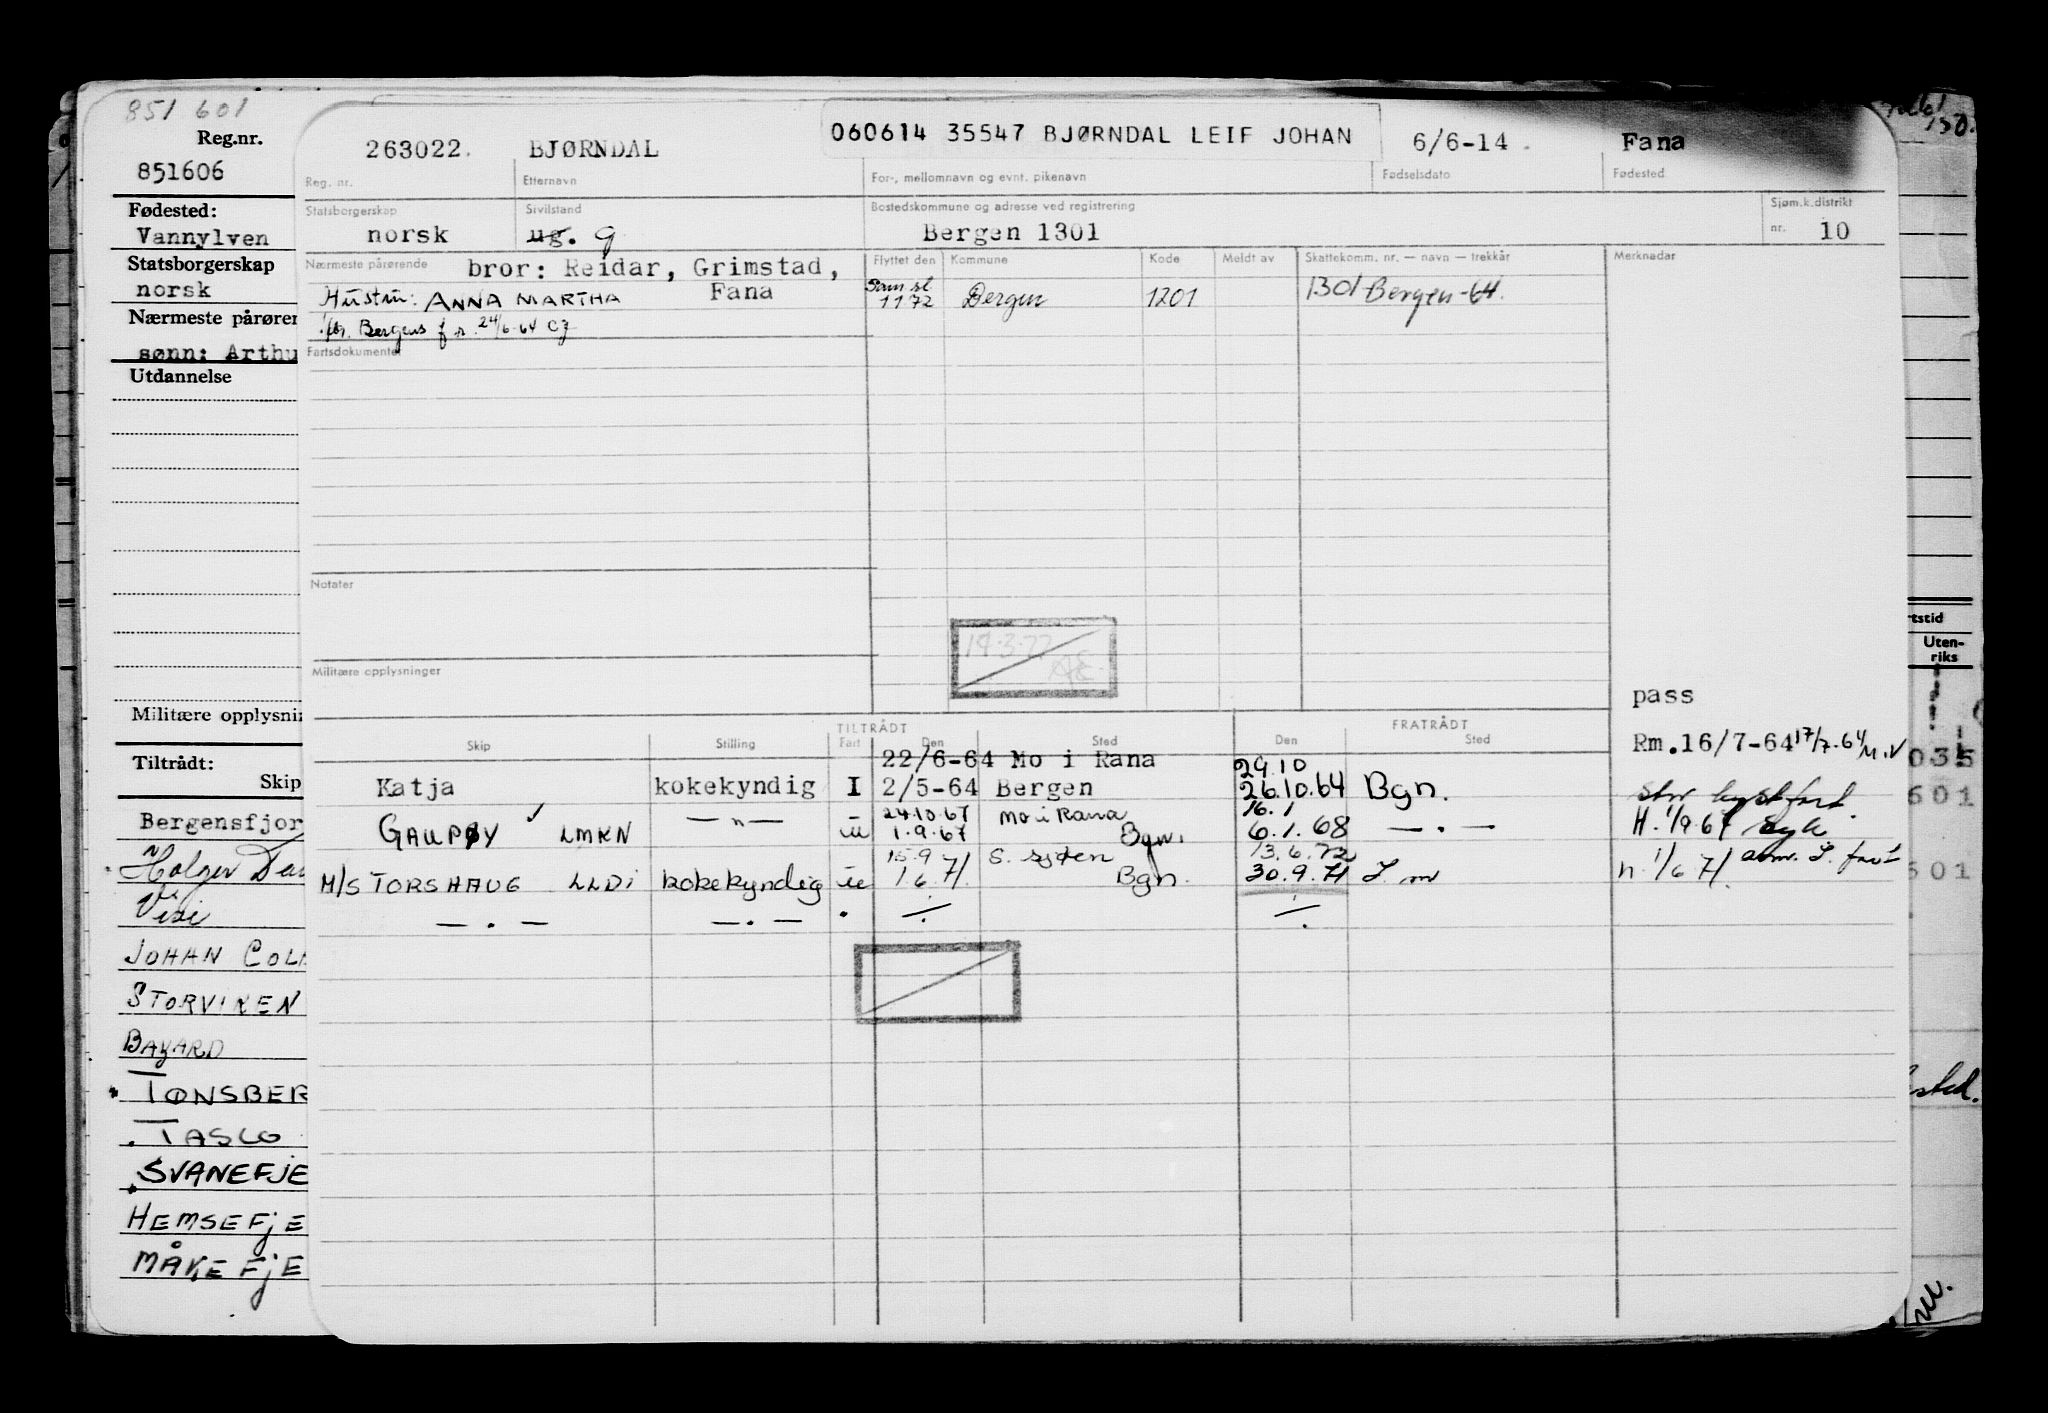 851 601
Reg.nr.
851606
Fødested:
Vannylven
Statsborgerskap
norsk
Nærmeste pårøren
sønn: Arthu
Utdannelse
Militære opplysnin
Tiltrådt:
Skip
Bergensfjor
Holger Dan
Visi
JOHAN COL
STORVIKEN
BAYARD
TØNSBER
TASCO
SVANEFJE
HEMSEFJE
MÅKEFJE
263022. BJØRNDAL 060614 35547 BJØRNDAL LEIF JOHAN 6/6-14. Fana
Reg. nr. Etternavn For-, mellomnavn og evnt. pikenavn Fødselsdato Fødested
Statsborgerskap Sivilstand Bostedskommune og adresse ved registrering Sjøm.k.distrikt
norsk ug. g Bergen 1301 nr. 10
Nærmeste pårørende bror: Reidar, Grimstad, Fana
Hustru: ANNA MARTHA
Flyttet den Kommune Kode Meldt av Skattekomm. nr. — navn — trekkår Merknader
1 1 72 Bergen 1201 1301 Bergen-64.
Bergens f.r. 24/6-64
Fartsdokumenter
Notater
Militære opplysninger
TILTRÅDT FRATRÅDT
Skip Stilling Fart Den Sted Den Sted
22/6-64 Mo i Rana 29.10
Katja kokekyndig I 2/5-64 Bergen 26.10.64 Bgn.
24.10.67 Mo i Rana 16.1
GAUPØY LMKN —"— 1.9.67 Bgn. 6.1.68 —.—
15.9 13.6.72
M/S TORSHAUG LLDI kokekyndig 1.6.71. Bgn. 30.9.71
—.— —.—
pass
Rm.16/7-64 17/7-64
H. 1/9 67
n. 1/6 71.
rtstid
Uten-
riks
035
601
601
sted.